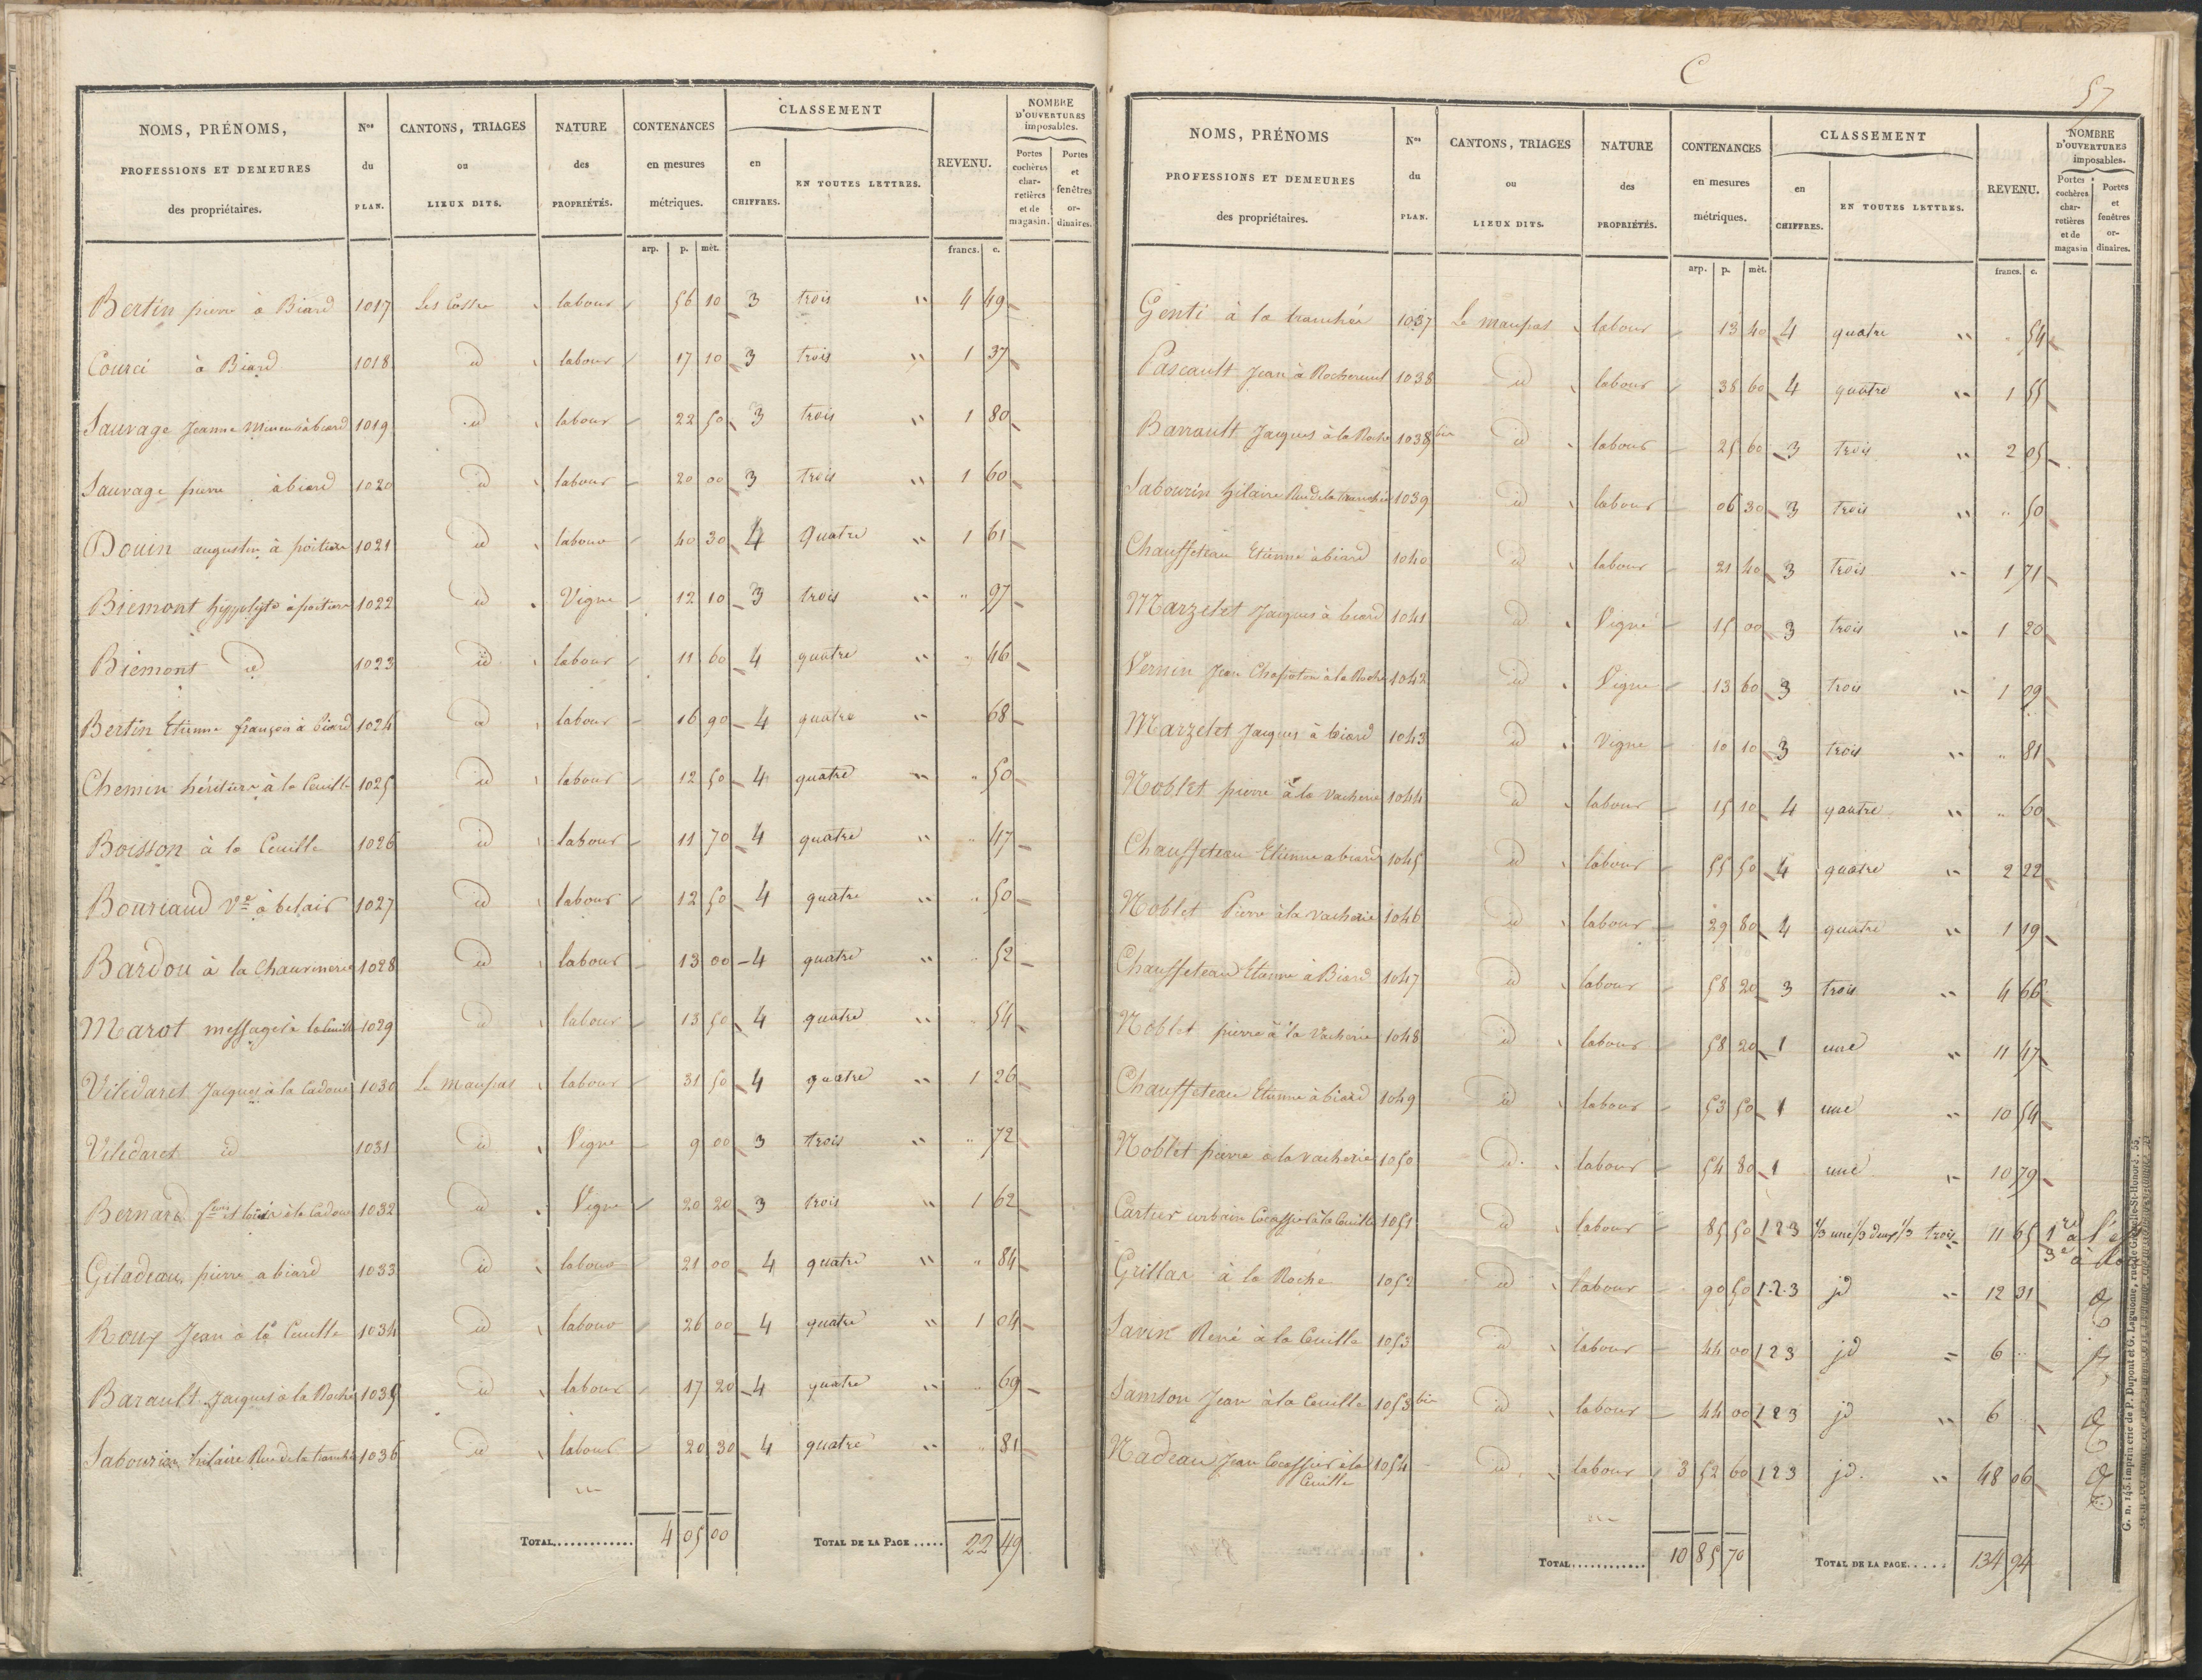 NOMS, PRÉNOMS,
PROFESSIONS ET DEMEURES
des propriétaires.
Nos
du
PLAN.
CANTONS, TRIAGES
ou
LIEUX DITS.
NATURE
des
PROPRIÉTÉS.
CONTENANCES
en mesures
métriques.
CLASSEMENT
en
CHIFFRES.
EN TOUTES LETTRES.
REVENU.
NOMBRE
D'OUVERTURES
imposables.
Portes
cochères
char-
retières
et de
magasin.
Portes
et
fenêtres
or-
dinaires.
arp. p. mèt. francs. c.
Bertin pierre à Biard 1017 Les Cosses labour 56 10 3 trois " 4 49
Courci à Biard 1018 id labour 17 10 3 trois " 1 37
Sauvage Jeanne à biard 1019 id labour 22 50 3 trois " 1 80
Sauvage pierre à biard 1020 id labour 20 00 3 trois " 1 60
Douin augustin à poitiers 1021 id labour 40 30 4 Quatre " 1 61
Biemont hyppolyte à poitiers 1022 id Vigne 12 10 3 trois " " 97
Biemont id 1023 id labour 11 60 4 quatre " " 46
Bertin Etienne françois à biard 1024 id labour 16 90 4 quatre " 68
Chemin héritiers à la Ceuille 1025 id labour 12 50 4 quatre " " 50
Boisson à la Ceuille 1026 id labour 11 70 4 quatre " " 47
Bouriaud Ve à belair 1027 id labour 12 50 4 quatre " " 50
Bardou à la Chauvinerie 1028 id labour 13 00 4 quatre " " 52
Marot messager à la Ceuille 1029 id labour 13 50 4 quatre " " 54
Viledaret Jacques à la Cadoue 1030 Le maupas labour 31 50 4 quatre " 1 26
Viledaret id 1031 id Vigne 9 00 3 trois " " 72
Bernard à la Cadoue 1032 id Vigne 20 20 3 trois " 1 62
Giladeau pierre a biard 1033 id labour 21 00 4 quatre " " 84
Roux Jean à la Ceuille 1034 id labour 26 00 4 quatre " 1 04
Barault Jacques à la Roche 1035 id labour 17 20 4 quatre " " 69
Sabourin hilaire Rue de la tranchée 1036 id labour 20 30 4 quatre " " 81
TOTAL............ 4 05 00 TOTAL DE LA PAGE ..... 22 49
C
57
NOMS, PRÉNOMS
PROFESSIONS ET DEMEURES
des propriétaires.
Nos
du
PLAN.
CANTONS, TRIAGES
ou
LIEUX DITS.
NATURE
des
PROPRIÉTÉS.
CONTENANCES
en mesures
métriques.
CLASSEMENT
en
CHIFFRES.
EN TOUTES LETTRES.
REVENU.
NOMBRE
D'OUVERTURES
imposables.
Portes
cochères
char-
retières
et de
magasin
Portes
et
fenêtres
or-
dinaires.
arp. p. mèt. francs. c.
Genti à la tranchée 1037 Le maupas labour 13 40 4 quatre " " 54
Pascault Jean à Rochereuil 1038 id labour 38 60 4 quatre " 1 55
Barrault Jacques à la Roche 1038 bis id labour 25 60 3 trois " 2 05
Sabourin hilaire Rue de la tranchée 1039 id labour 06 30 3 trois " " 50
Chauffeteau Etienne à biard 1040 id labour 21 40 3 trois " 1 71
Marzelet Jacques à biard 1041 id Vigne 15 00 3 trois " 1 20
Vernin Jean à la Roche 1042 id Vigne 13 60 3 trois " 1 09
Marzelet Jacques à biard 1043 id Vigne 10 10 3 trois " " 81
Noblet pierre à la Vacherie 1044 id labour 15 10 4 quatre " " 60
Chauffeteau Etienne a biard 1045 id labour 55 50 4 quatre " 2 22
Noblet Pierre à la vacherie 1046 id labour 29 80 4 quatre " 1 19
Chauffeteau Etienne à Biard 1047 id labour 58 20 3 trois " 4 66
Noblet pierre à la Vacherie 1048 id labour 58 20 1 une " 11 47
Chauffeteau Etienne à biard 1049 id labour 53 50 1 une " 10 54
Noblet pierre a la vacherie 1050 id labour 54 80 1 une " 10 79
Cartier urbain Cocassier à la Ceuille 1051 id labour 85 50 1 2 3 1/3 une 1/3 deux 1/3 trois 11 65
Grillas à la Roche 1052 id labour 90 50 1.2.3 jd " 12 31
Savin René à la Ceuille 1053 id labour 44 00 1 2 3 jd " 6 "
Samson Jean à la Ceuille 1053 bis id labour 44 00 1 2 3 jd " 6 "
Nadeau Jean Cocassier à la 1054 id labour 3 52 60 1 2 3 jd. " 48 06
Ceuille
TOTAL............ 10 85 70 TOTAL DE LA PAGE..... 134 94